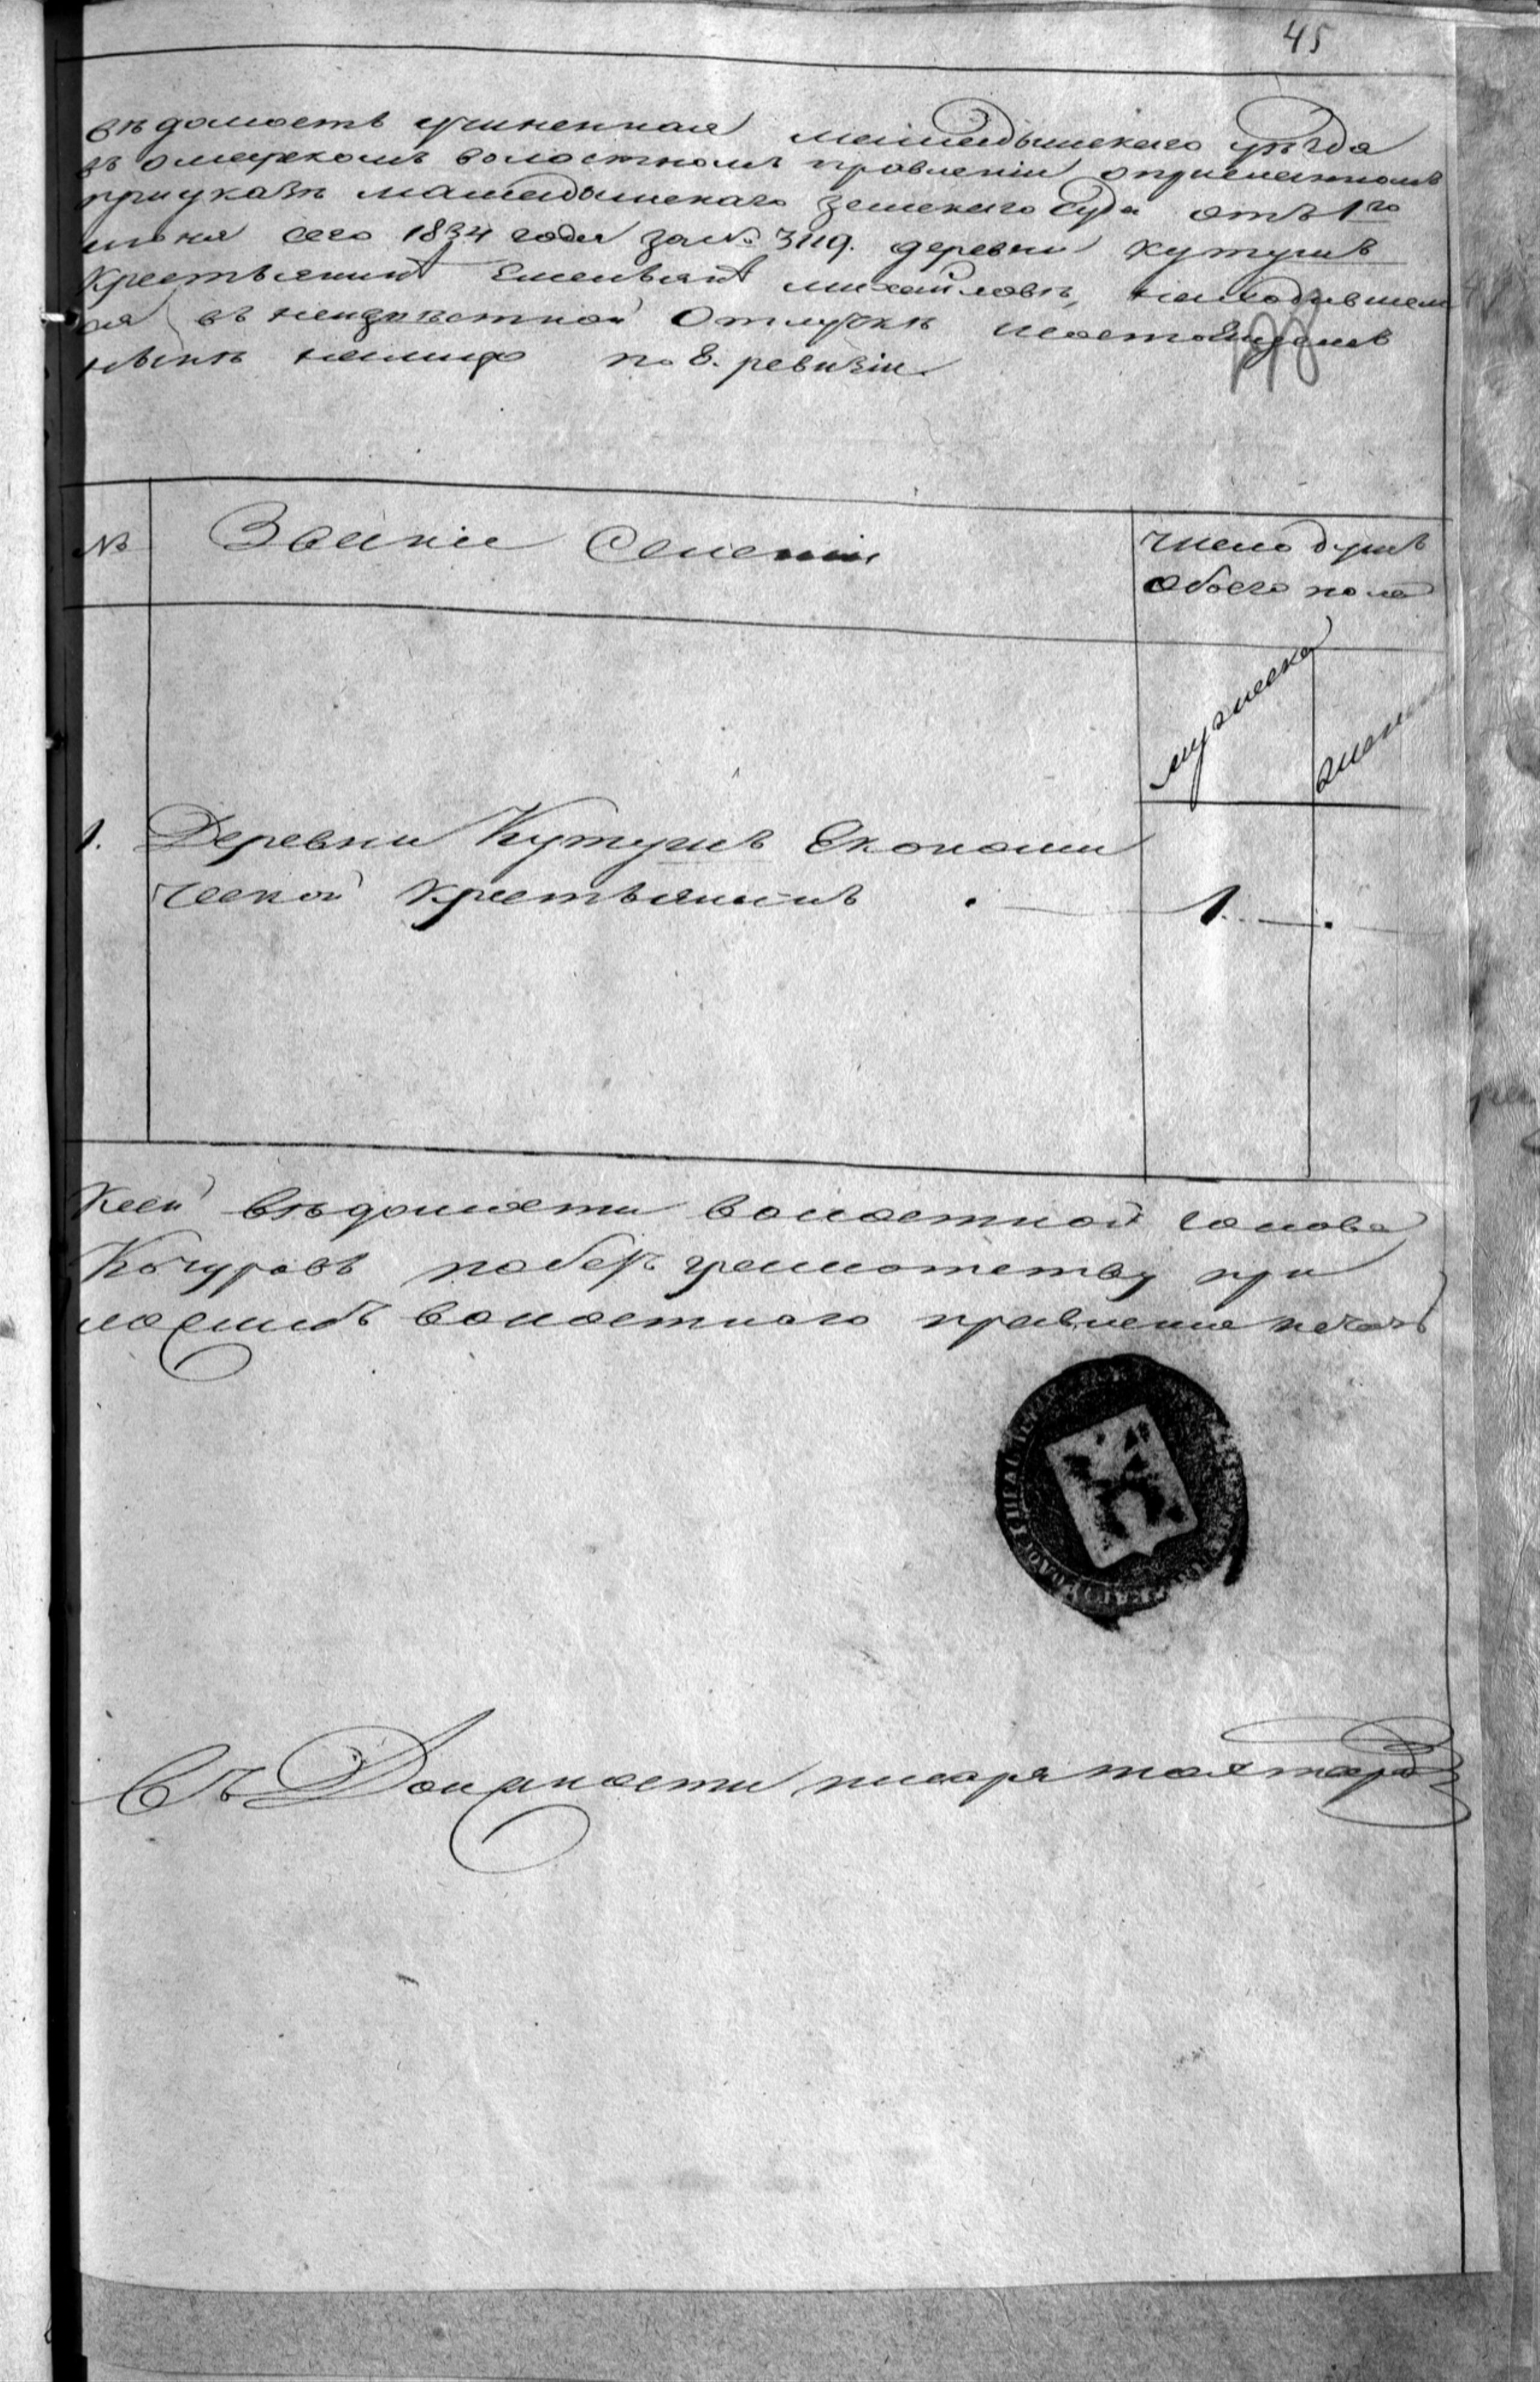 45
вѣдомость учиненная мамадышскаго уѣзда
въ омарскомъ волостномъ правленіи описменномъ
при указѣ мамадышскаго земскаго суда отъ 1го
июня сего 1834 года за № 3119. деревни Кутушъ
крестьянинѣ Емельянѣ михайловѣ, находившем
ся въ неизвѣстной отлучкѣ
нынѣ налицо по 8. ревизіи
№
Званіи Селеніи
число душъ
обоего пола
мужеска
женска
1. Деревни Кутушъ Економи
ческой крестьянинъ 1.
Ксей вѣдомости волостной голова
Качуровъ побезграмотству при
ложилъ волостнаго правления печать
Въ Должности писаря